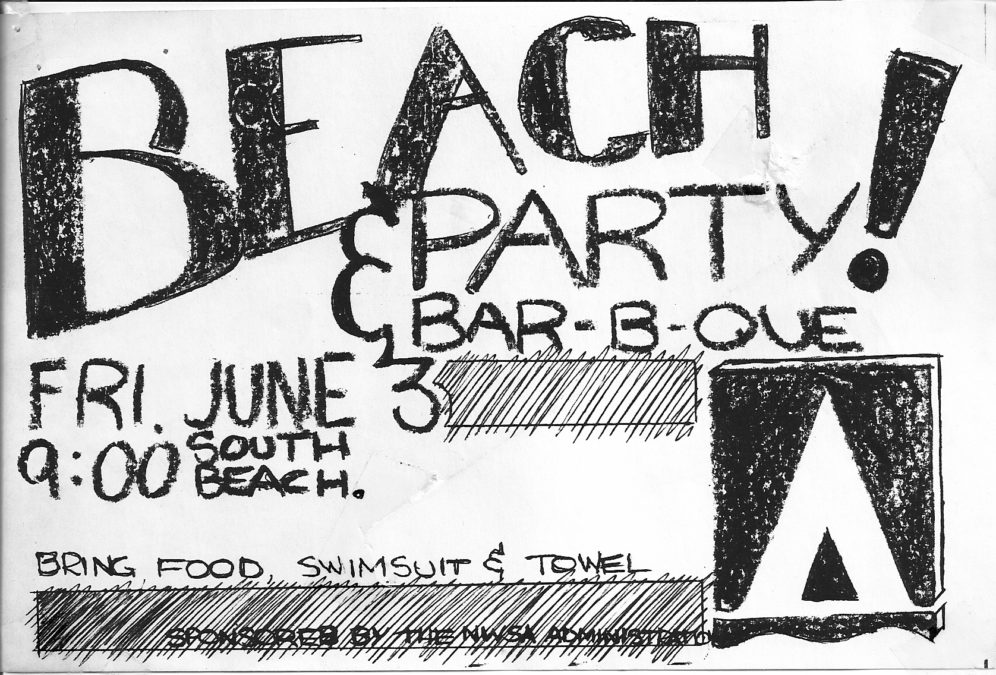 BEACH
PARTY!
& BAR-B-QUE
FRI. JUNE 3
9:00 SOUTH
BEACH.
BRING FOOD, SWIMSUIT & TOWEL
SPONSORED BY THE NWSA ADMINISTRATION